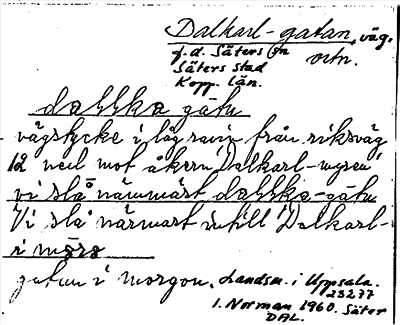 Dalkarl-gatan, väg.
f.d. Säters sn
ortn.
Säters stad
Kopp. län.
dallska gåtu
vägstycke i låg ravin från riksväg
12 ned mot åkern Dalkarl-myren
vi slå närmast dallska-gåtu
Vi slå närmast intill Dalkarl-
i mǫrǫ
gatan i morgon. Landsm. i Uppsala.
23277
I. Norman 1960. Säter
DAL.